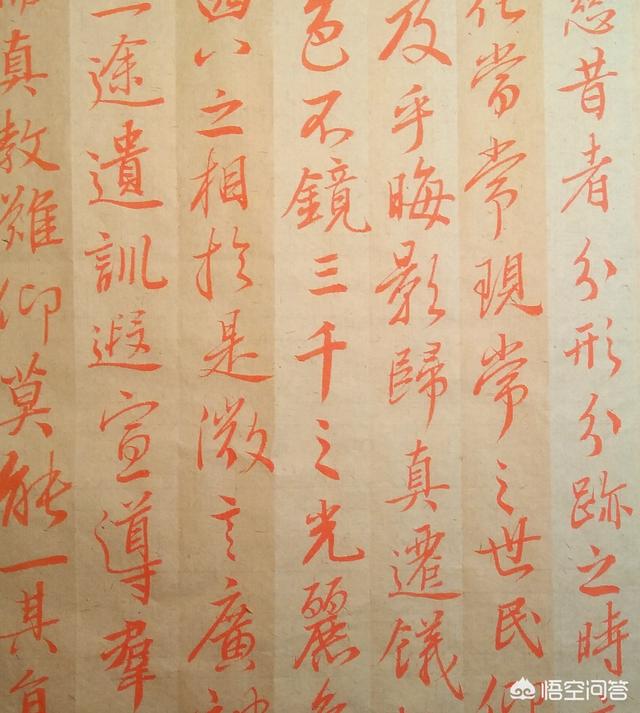 慈昔者分形分跡之時
化當常現常之世民仰
及乎晦影歸真遷儀
色不鏡三千之光麗
四八之相於是微言廣
途遺訓遐宣導羣
真教難仰莫能一其旨
悟空问答